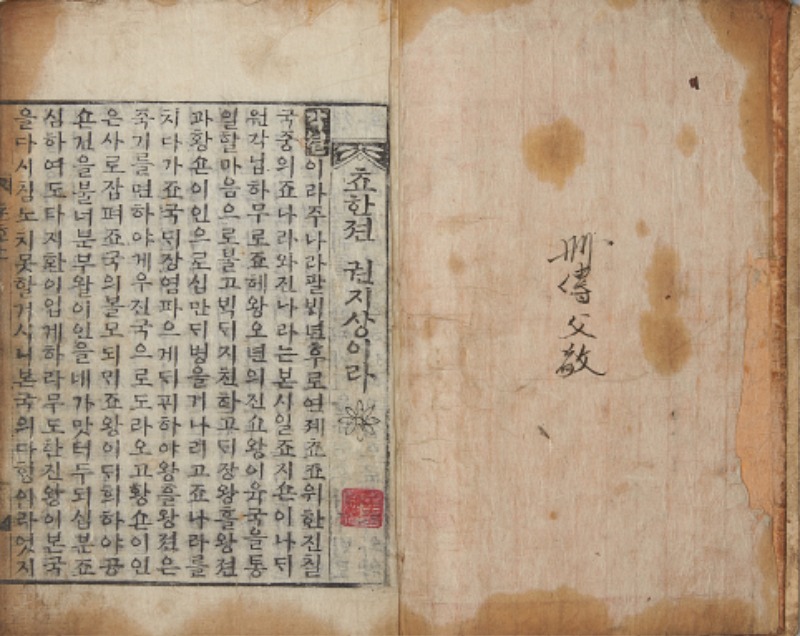 傳父敬
쵸한젼 권지상이라
각셜이라주나라팔ᄇᆡᆨ년후로연졔쵸죠위한진칠
국즁의죠나라와진나라는본시일죠지손이나ᄃᆡ
원각넘하무로죠혜왕오년의진쇼왕이육국을통
일할마음으로불고ᄇᆡᆨᄃᆡ지천하고ᄃᆡ장왕흘왕젼
과황손이인으로십만ᄃᆡ병을거나려고죠나라를
치다가죠국ᄃᆡ장염파으게ᄃᆡᄑᆡ하야왕흘왕젼은
죽기를면하야계우진국으로도라오고황손이인
은사로잡펴죠국의볼모되ᄆᆡ죠왕이ᄃᆡ희하야공
손건을불너분부왈이인을네가맛터두되심분죠
심하여도타지환이업게하라무도한진왕이본국
을다시침노치못할거시니본국의다행이라엇지